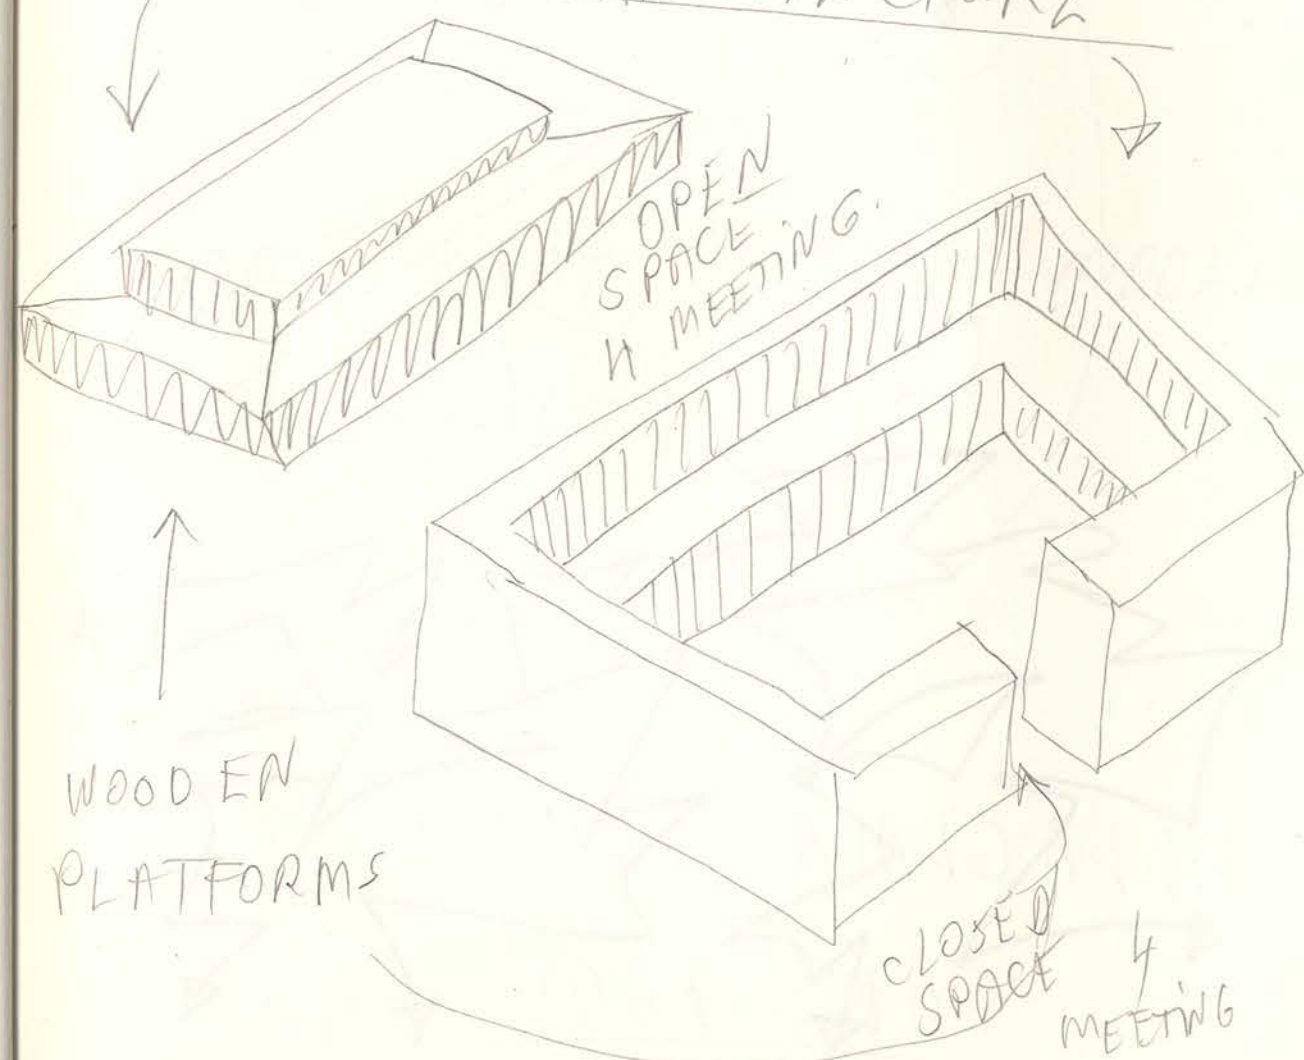 OPEN
SPACE
4 MEETING.
WOODEN
PLATFORMS
CLOSED
SPACE 4
MEETING